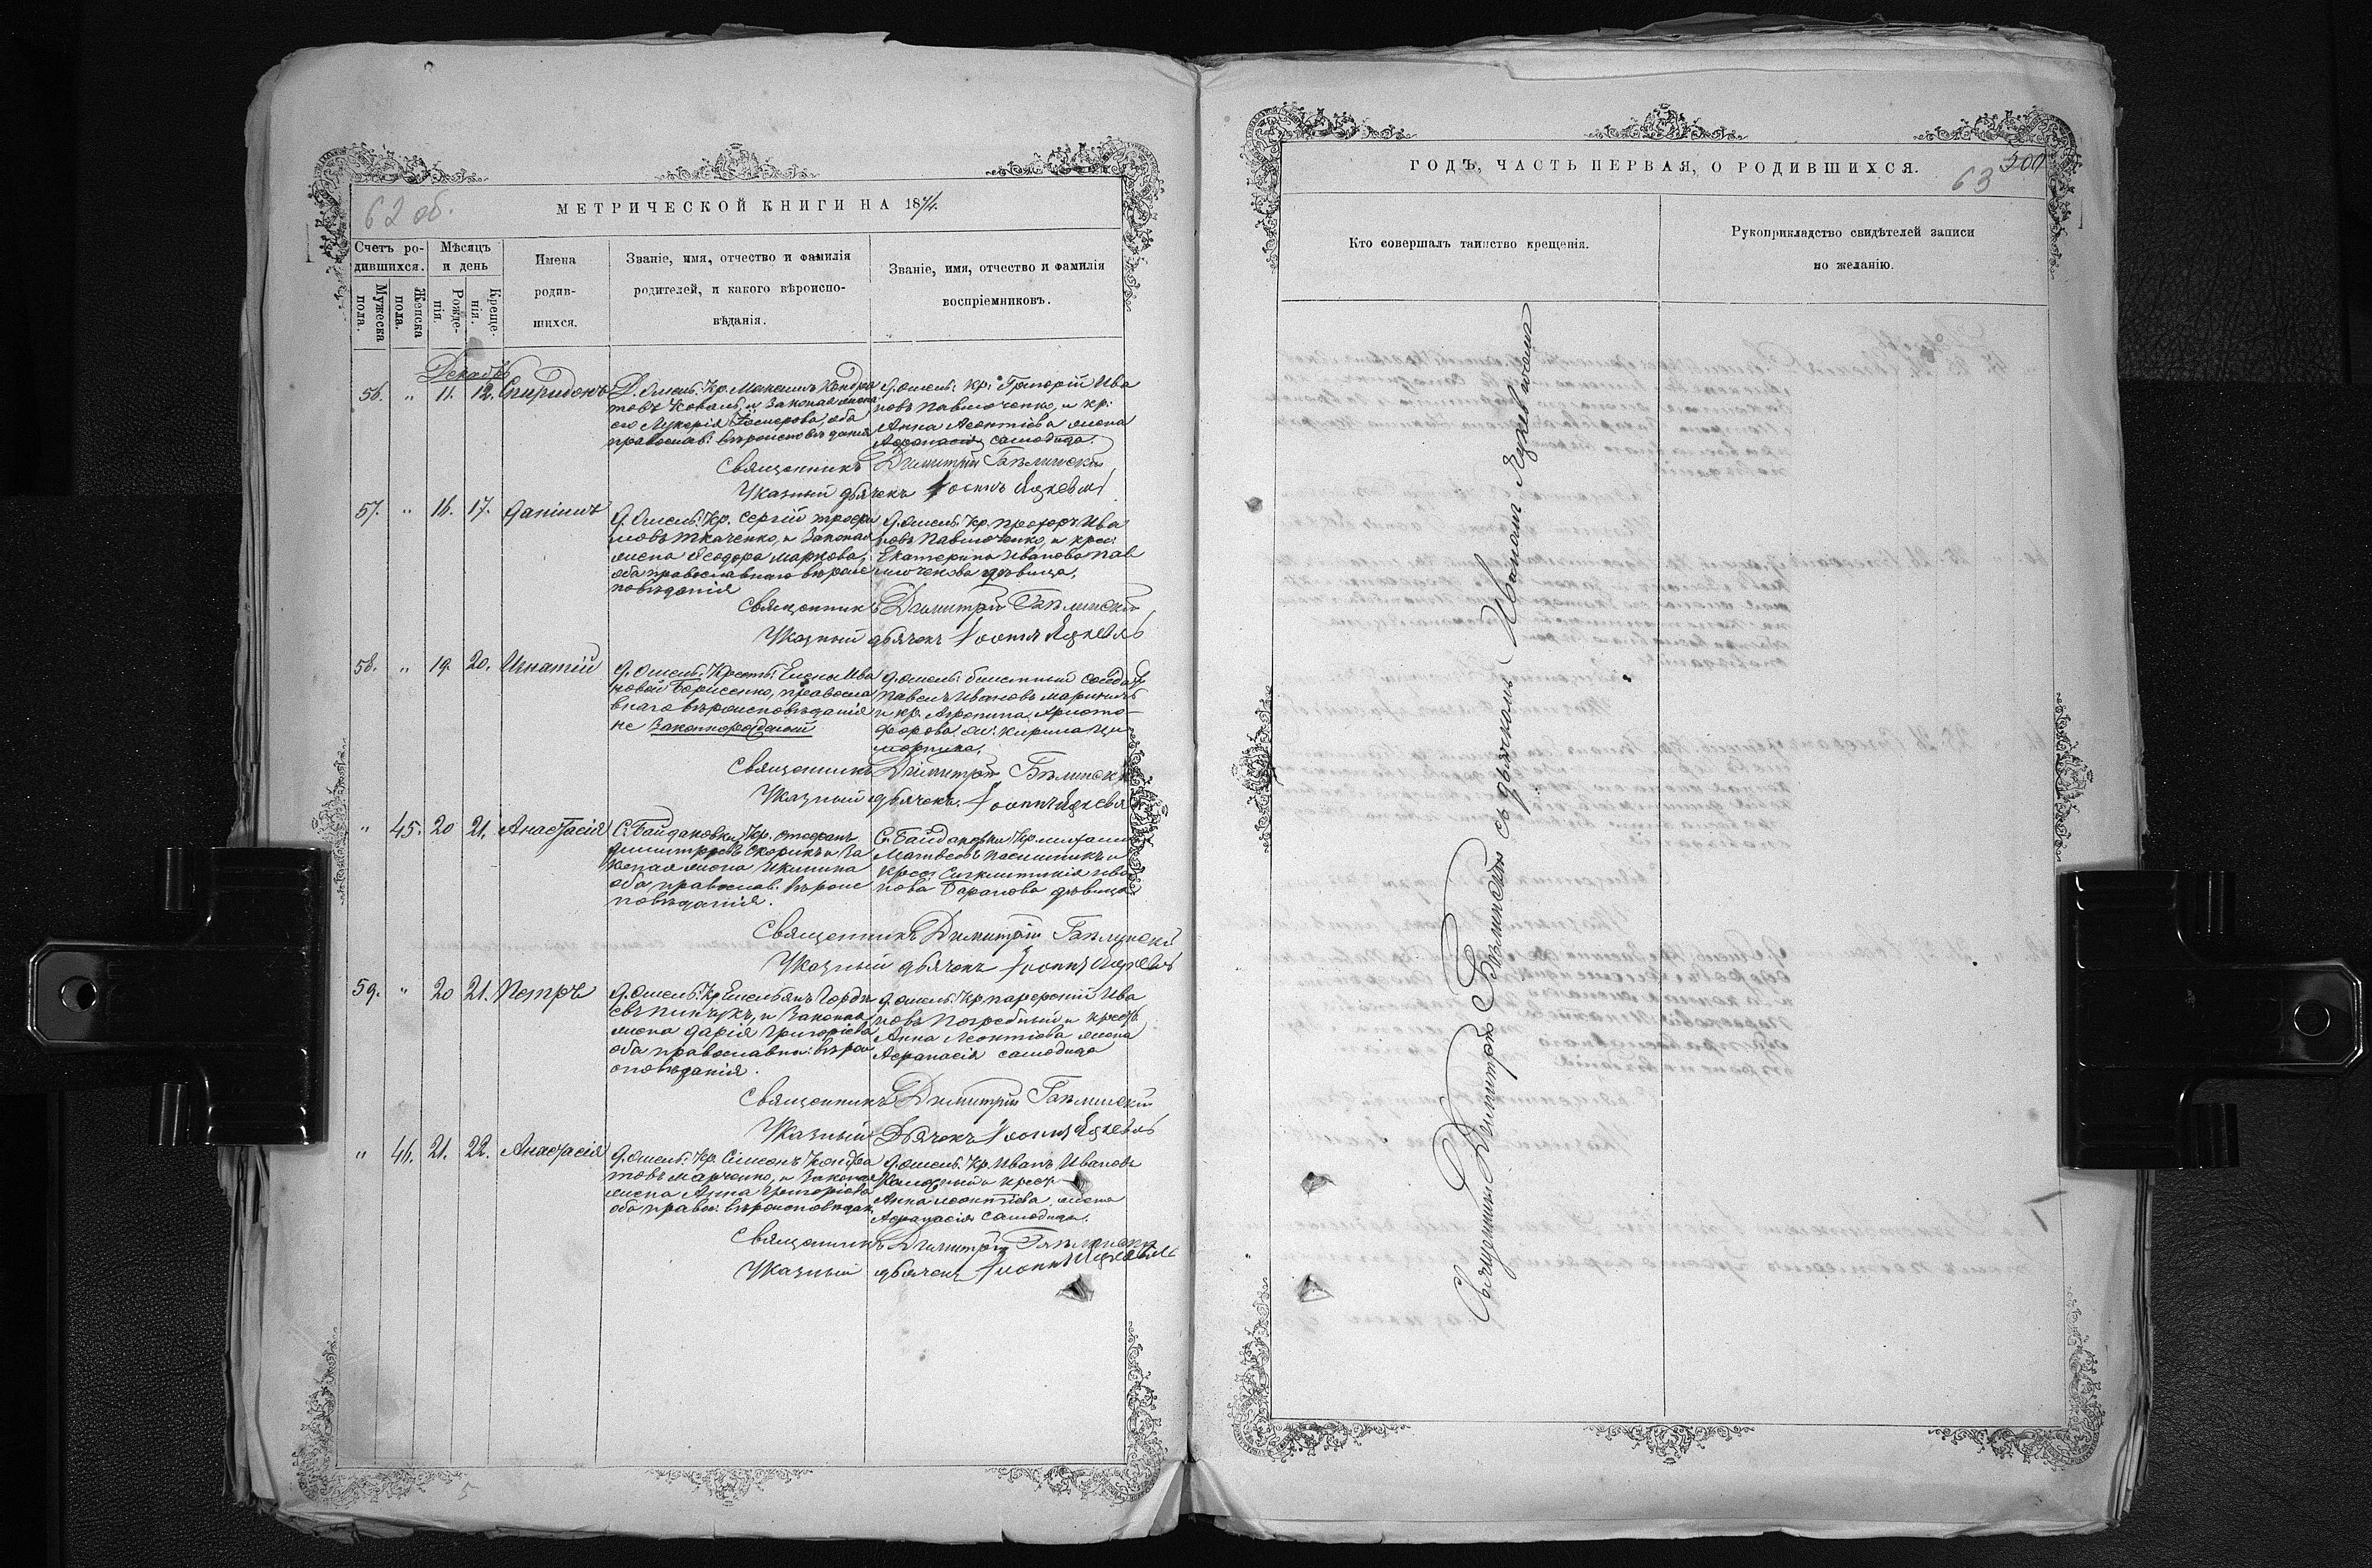 62 об.
МЕТРИЧЕСКОЙ КНИГИ НА 1871.
Счетъ ро-
дившихся.
Мѣсяцъ
и день
Мужеска
пола.
Женска
пола.
Рожде-
нія.
Креще-
нія.
Имена
родив-
шихся.
Званіе, имя, отчество и фамилія
родителей, и какого вѣроиспо-
вѣданія.
Званіе, имя, отчество и фамилія
воспріемниковъ.
Декабрь
56. " 11. 12. Спиридонъ
Д. Омель: Кр. Максимъ Кондра
товъ Коваль, и Законая жена
его Лукерія, оба
православ: вѣроисповѣданія
Д. Омель: Кр: Григорій Ива
новъ Павлюченко, и кр:
Анна Леонтіева жена
Аѳанасія Самодида.
Священникъ Димитрій Бѣлинскій
Указный дьячекъ
57. " 16. 17. Даніилъ
Д. Омель: Кр. Сергій Трофи
мовъ Ткаченко, и Законая
жена Ѳеодора Маркова,
оба православнаго вѣроис
повѣданія
Д. Омель: Кр. Прохоръ Ива
новъ Павлюченко, и крес:
Екатерина Иванова Пав
люченкова дѣвица.
Священникъ Димитрій Бѣлинскій
Указный дьячекъ
58. " 19. 20. Игнатій
Д. Омель: Крест: Елены Ива
новой Борисенко, правосла
внаго вѣроисповѣданія
не законнорожденой
Д. Омель: билетный солдатъ
Павелъ Ивановъ
и кр. Агрепина Христо-
форова ж: Кирила
Священникъ Димитрій Бѣлинскій
Указный дьячекъ
" 45. 20 21. Анастасія
С. Байдаковки, Кр. Стефанъ
Димитріевъ Скорикъ и За
коная жена
оба православ: вѣроис
повѣданія.
С. Байдаковки Кр. Михаилъ
Матвеевъ Пасишникъ и
крес: Сигклитикія Ива
нова Баранова дѣвица
Священникъ Димитрій Бѣлинскій
Указный дьячекъ
59. " 20 21. Петръ
Д. Омель: Кр Емельянъ Горди
евъ Пинчукъ, и Законая
жена Дарія Григоріева
оба православна: вѣрои
сповѣданія.
Д. Омель: Кр Парфеній Ива
новъ Погребный и крест
Анна Леонтіева жена
Аѳанасія Самодида
Священникъ Димитрій Бѣлинскій
Указный Дьячекъ
" 46. 21. 22. Анастасія
Д. Омель: Кр. Симеонъ Кондра
товъ Марченко, и Законая
жена Анна Григоріева
оба право: вѣроисповѣдан.
Д. Омель: Кр. Иванъ Ивановъ
и крест
Анна Леонтіева жена
Аѳанасія Самодида.
Священникъ Димитрій Бѣлинскій
Указный дьячекъ
5
ГОДЪ, ЧАСТЬ ПЕРВАЯ, О РОДИВШИХСЯ.
63
Кто совершалъ таинство крещенія.
Рукоприкладство свидѣтелей записи
по желанію.
Священникъ Димитрій Бѣлинскій съ дьячкомъ Иваномъ